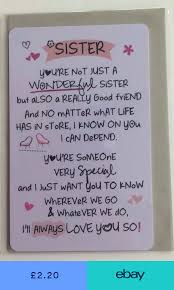 SISTER
YOU'RE NOT JUST A
WONDERFUL SISTER
but ALSO A REALLY GOOD FRIEND
AND NO MATTER WHAT LIFE
HAS IN STORE, I KNOW ON YOU
I CAN DEPEND.
YOU'RE SOMEONE
VERY Special
AND I JUST WANT YOU TO KNOW
WHEREVER WE GO
& WHATEVER WE DO,
I'll ALWAYS LOVE YOU SO!
£2.20
ebay